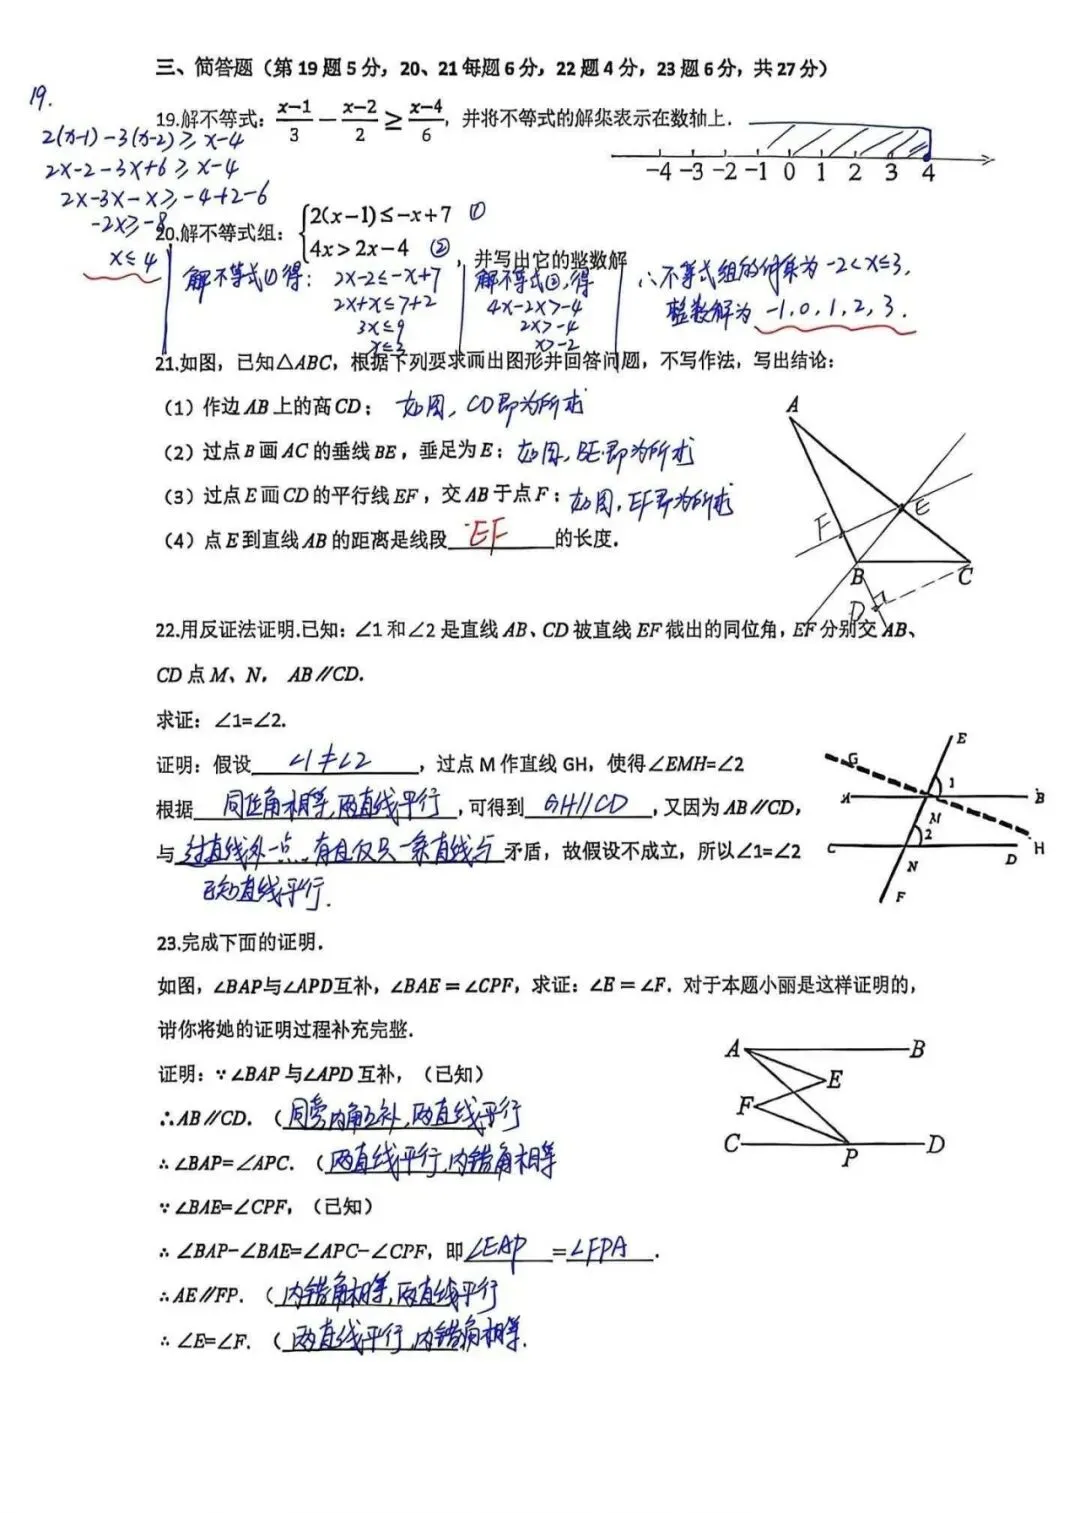 三、简答题（第19题5分，20、21每题6分，22题4分，23题6分，共27分）
19.
19.解不等式：x−1/3 − x−2/2 ≥ x−4/6，并将不等式的解集表示在数轴上．
2(x-1)-3(x-2)≥x-4
2x-2-3x+6≥x-4
2x-3x-x≥-4+2-6
-2x≥-8
x≤4
-4 -3 -2 -1 0 1 2 3 4
20.解不等式组：{2(x−1)≤−x+7 ①
4x>2x−4 ②，并写出它的整数解
解不等式①得：2x-2≤-x+7
2x+x≤7+2
3x≤9
x≤3
解不等式②,得
4x-2x>-4
2x>-4
x>-2
∴不等式组的解集为-2<x≤3,
整数解为 -1,0,1,2,3.
21.如图，已知△ABC，根据下列要求画出图形并回答问题，不写作法，写出结论：
（1）作边AB上的高CD； 如图，CD即为所求
（2）过点B画AC的垂线BE，垂足为E；如图，BE即为所求
（3）过点E画CD的平行线EF，交AB于点F；如图，EF即为所求
（4）点E到直线AB的距离是线段 EF 的长度．
A
F
E
B
C
D
22.用反证法证明.已知：∠1和∠2是直线AB、CD被直线EF截出的同位角，EF分别交AB、
CD点M、N， AB∥CD.
求证：∠1=∠2.
证明：假设 ∠1≠∠2 ，过点M作直线GH，使得∠EMH=∠2
根据 同位角相等，两直线平行 ,可得到 GH//CD ,又因为AB∥CD，
与 过直线外一点，有且仅只一条直线与 矛盾，故假设不成立，所以∠1=∠2
已知直线平行.
E
G
1
A
B
M
2
C
D
H
N
F
23.完成下面的证明．
如图，∠BAP与∠APD互补，∠BAE＝∠CPF，求证：∠E＝∠F．对于本题小丽是这样证明的，
请你将她的证明过程补充完整．
证明：∵∠BAP与∠APD互补，（已知）
∴AB∥CD．（同旁内角互补，两直线平行
∴∠BAP=∠APC．（两直线平行，内错角相等
∵∠BAE=∠CPF，（已知）
∴∠BAP−∠BAE=∠APC−∠CPF，即∠EAP=∠FPA．
∴AE∥FP．（内错角相等，两直线平行
∴∠E=∠F．（两直线平行，内错角相等.
A
B
E
F
C
P
D